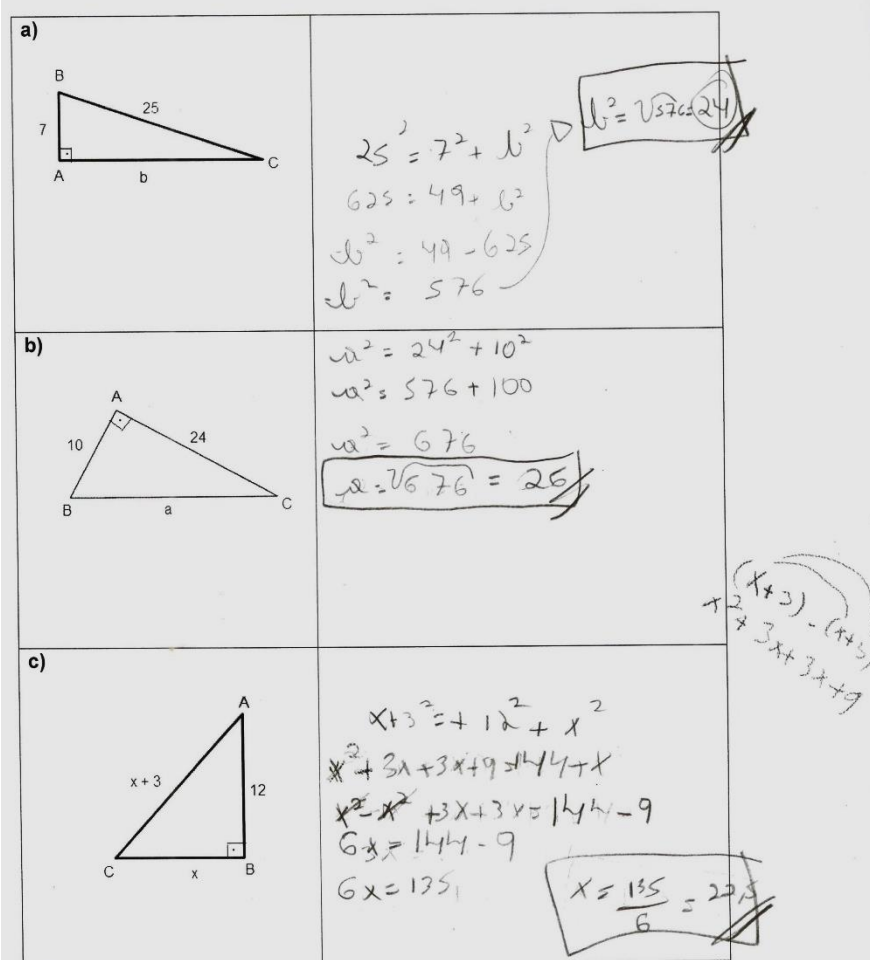 a)
B
25
7
A
b
C
25² = 7² + b²
625 = 49 + b²
b² = 49 - 625
-b² = 576
b² = √576 = 24
b)
A
10
24
B
a
C
a² = 24² + 10²
a² = 576 + 100
a² = 676
a = √676 = 26
(x+3) - (x+3)
x² + 3x + 3x + 9
c)
A
x + 3
12
C
x
B
x+3² = + 12² + x²
x² + 3x + 3x + 9 = 144 + x
x² - x² + 3x + 3x = 144 - 9
6x = 144 - 9
6x = 135
x = 135/6 = 22,5